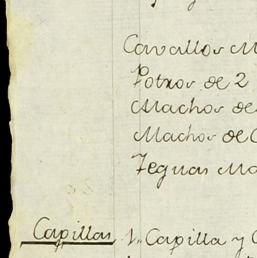 Cavallos M
Potros de 2
Machos de
Machos de C
Yeguas Ma
Capillas 1. Capilla y C